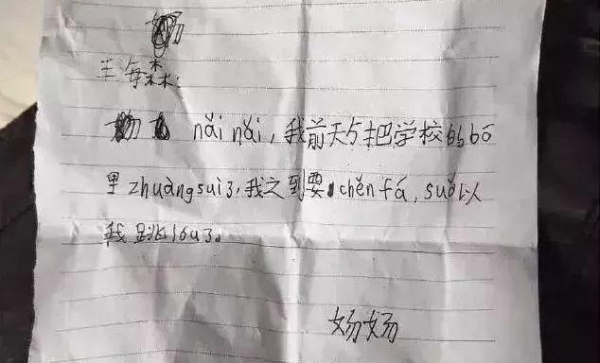 王海森：
nǎi nǎi，我前天与把学校的bō
里zhuàng suì了，我之到要chěn fá，suǒ以
我跳lóu了。